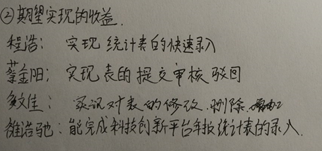 ②期望实现的收益.
程浩: 实现 统计表的快速录入
蔡金阳: 实现表的提交审核驳回
佳: 实现对表的修改.删除.
雒浩驰: 能完成科技创新平台年报统计表的录入.